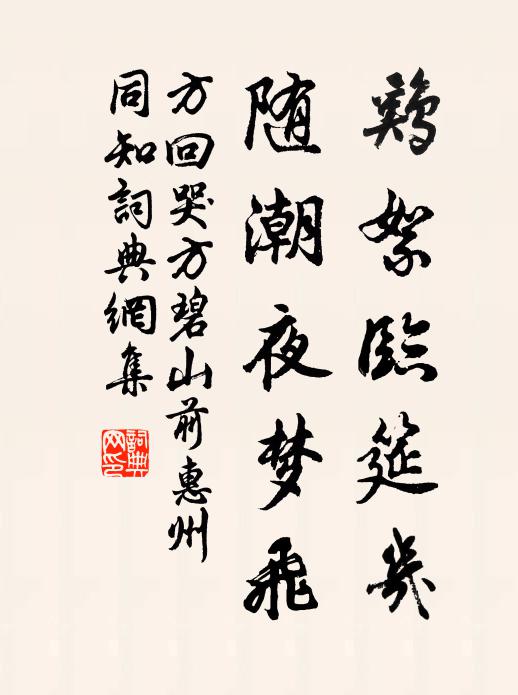 鷄絮臨筵幾
随潮夜梦飛
方回哭方碧山前惠州
同知詞典網集
詞典
网印